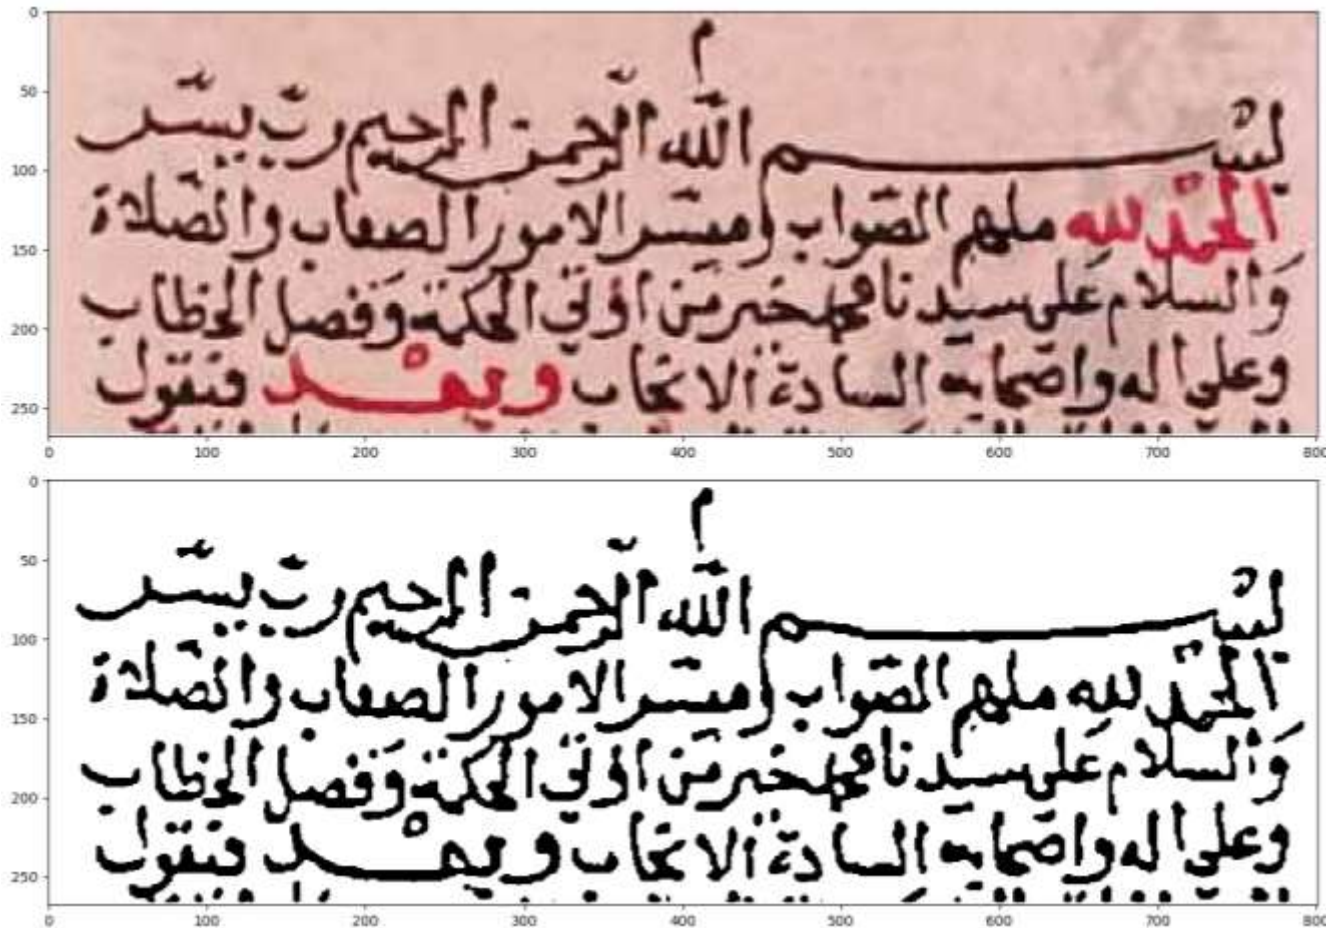 0
م
50
بسم الله الرحمن الرحيم ربّ يسّر
100
الحمد لله ملهم الصّواب وميسّر الامور الصعاب والصّلاة
150
وَالسلام عَلى سيدنا محمد خير مَن اوتي الحكمة وَفصل الخطاب
200
وعلى اله واصحابه السادة الانجاب وبعْد فيقول
250
0 100 200 300 400 500 600 700 800
0
م
50
بسم الله الرحمن الرحيم ربّ يسّر
100
الحمد لله ملهم الصّواب وميسّر الامور الصعاب والصّلاة
150
وَالسلام عَلى سيدنا محمد خير مَن اوتي الحكمة وَفصل الخطاب
200
وعلى اله واصحابه السادة الانجاب وبعْد فيقول
250
0 100 200 300 400 500 600 700 800